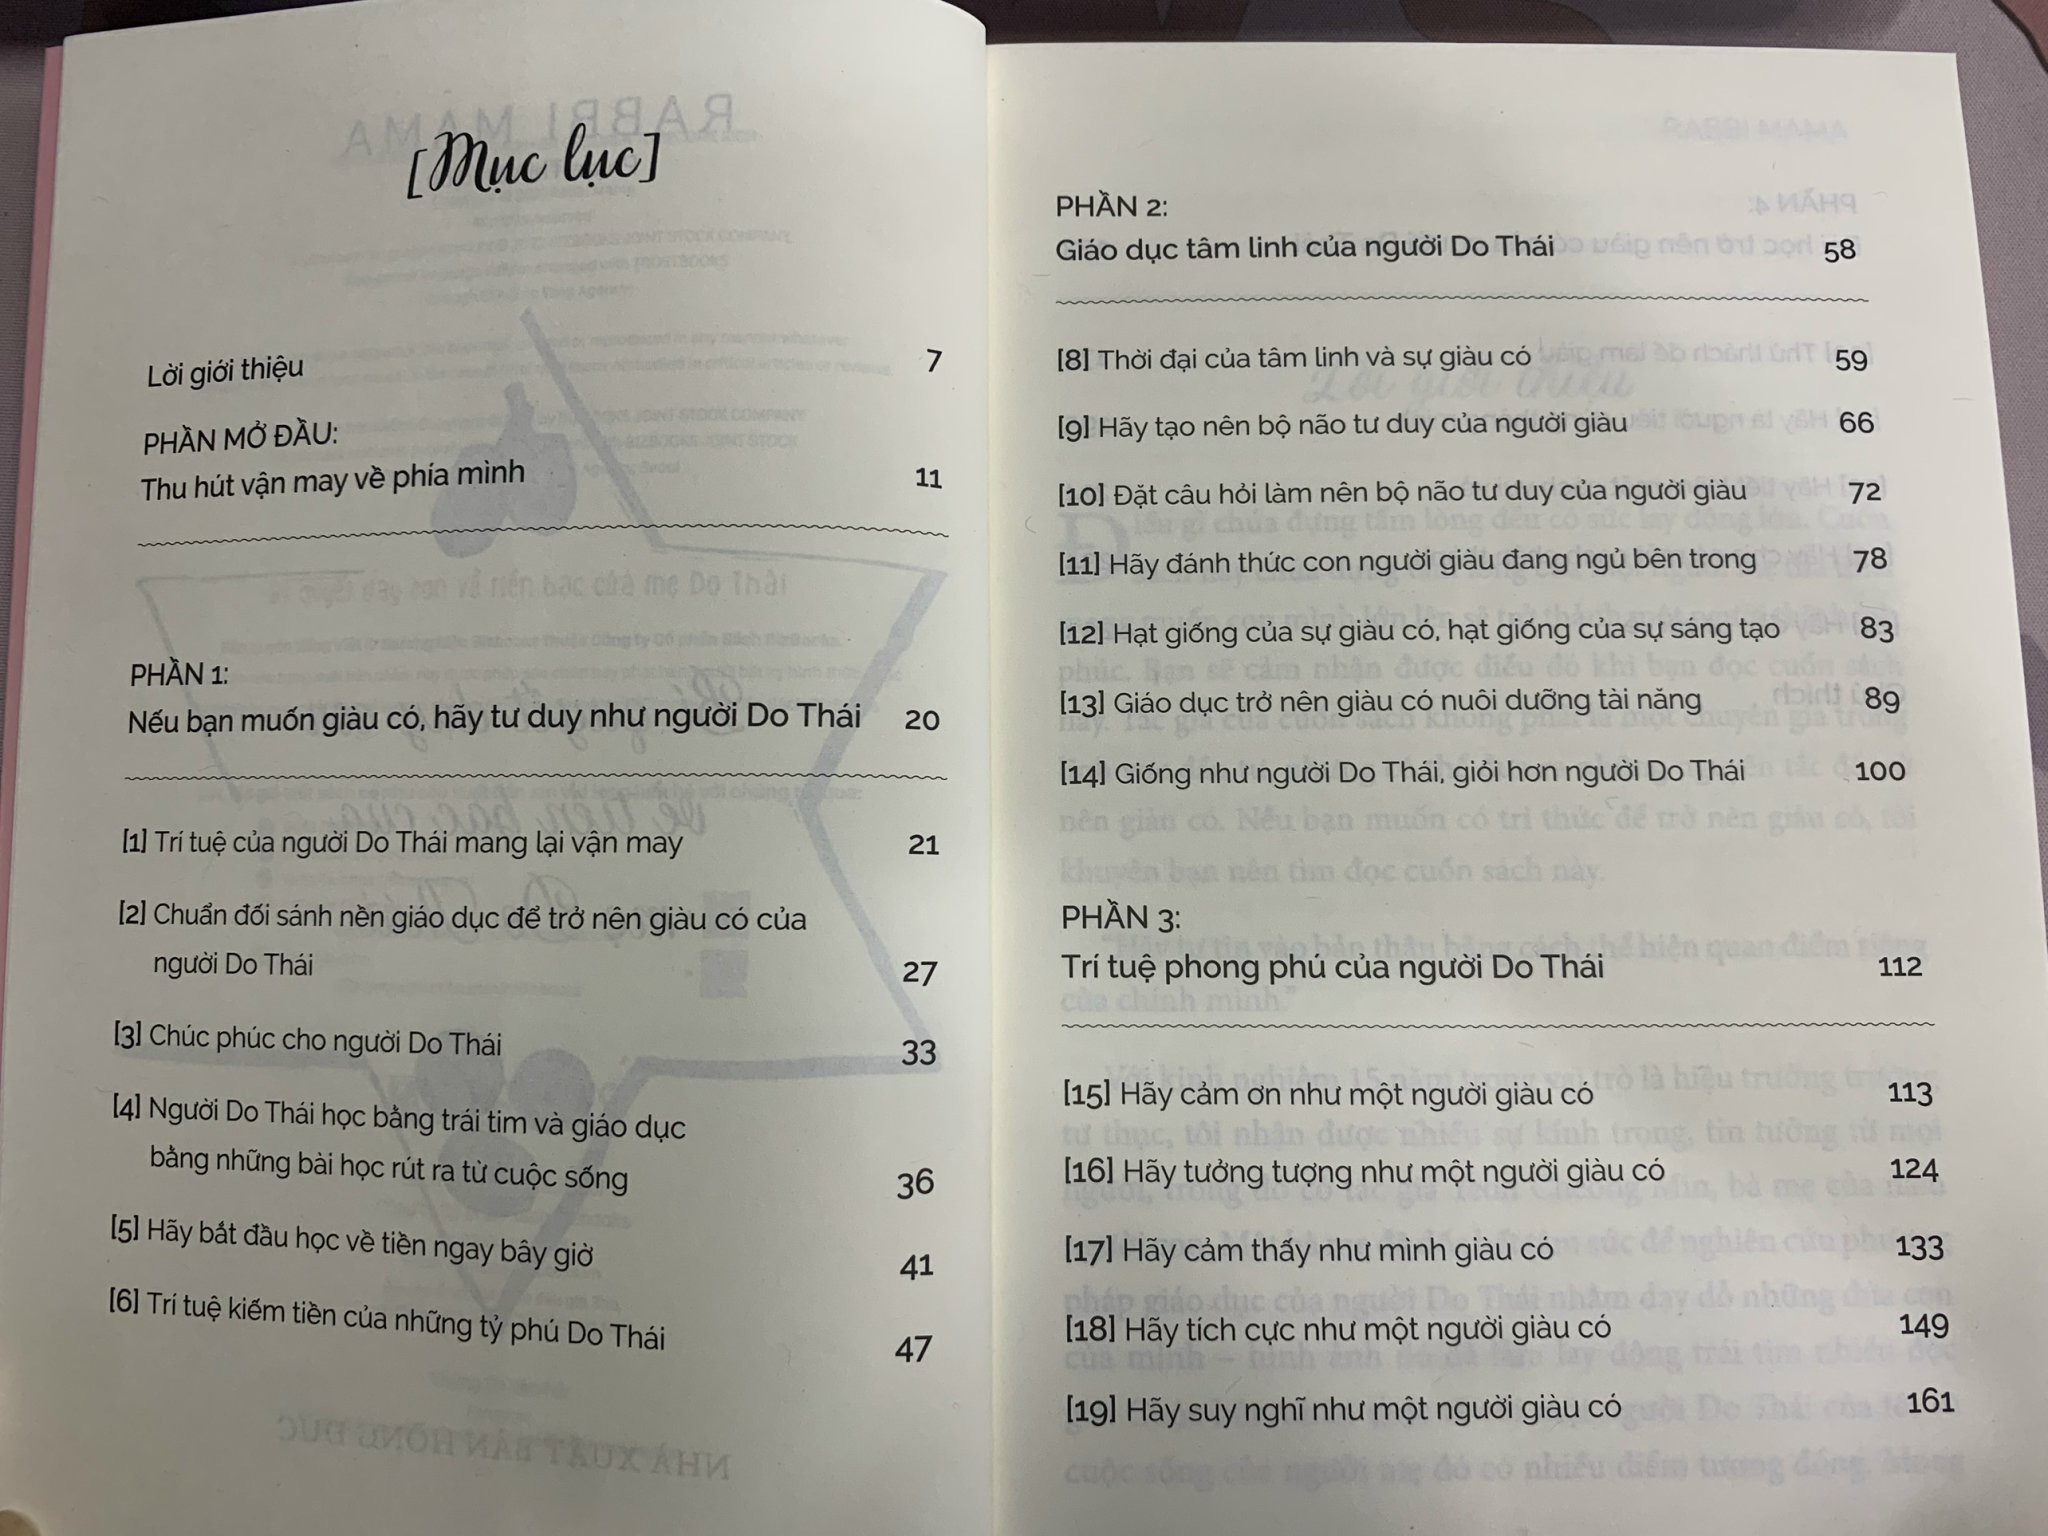 [Mục lục]
Lời giới thiệu 7
PHẦN MỞ ĐẦU:
Thu hút vận may về phía mình 11
PHẦN 1:
Nếu bạn muốn giàu có, hãy tư duy như người Do Thái 20
[1] Trí tuệ của người Do Thái mang lại vận may 21
[2] Chuẩn đối sánh nền giáo dục để trở nên giàu có của
người Do Thái 27
[3] Chúc phúc cho người Do Thái 33
[4] Người Do Thái học bằng trái tim và giáo dục
bằng những bài học rút ra từ cuộc sống 36
[5] Hãy bắt đầu học về tiền ngay bây giờ 41
[6] Trí tuệ kiếm tiền của những tỷ phú Do Thái 47
PHẦN 2:
Giáo dục tâm linh của người Do Thái 58
[8] Thời đại của tâm linh và sự giàu có 59
[9] Hãy tạo nên bộ não tư duy của người giàu 66
[10] Đặt câu hỏi làm nên bộ não tư duy của người giàu 72
[11] Hãy đánh thức con người giàu đang ngủ bên trong 78
[12] Hạt giống của sự giàu có, hạt giống của sự sáng tạo 83
[13] Giáo dục trở nên giàu có nuôi dưỡng tài năng 89
[14] Giống như người Do Thái, giỏi hơn người Do Thái 100
PHẦN 3:
Trí tuệ phong phú của người Do Thái 112
[15] Hãy cảm ơn như một người giàu có 113
[16] Hãy tưởng tượng như một người giàu có 124
[17] Hãy cảm thấy như mình giàu có 133
[18] Hãy tích cực như một người giàu có 149
[19] Hãy suy nghĩ như một người giàu có 161